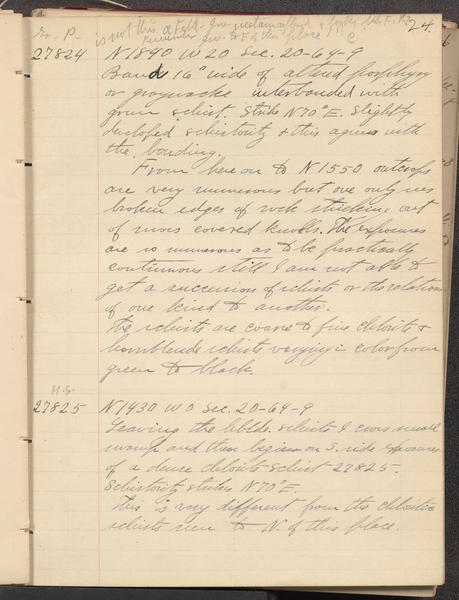 is not this a Fyld. gw. metamorphosed &
24.
Gr-P-
gw. & E of this place
27824 N1890 W20 Sec. 20-64-9
Bands 16" wide of altered porphyry
or graywacke interbanded with
green schist. Strike N70°E. Slightly
developed schistosity & this agrees with
the banding.
From here on to N1550 outcrops
are very numerous but one only sees
broken edges of rock sticking out
of moss covered knolls. The exposures
are so numerous as to be practically
continuous still I am not able to
get a succession of schists or the relations
of one kind to another.
The schist are coarse to fine chlorite &
hornblende schists varying in color from
green to black.
27825 N1430 W0 Sec. 20-64-9
Leaving the hblde. schists I cross small
swamp and then begins on S. side exposures
of a dense chlorite schist 27825-.
Schistosity strikes N70°E.
This is very different from the chloritic
schists seen to N. of this place.